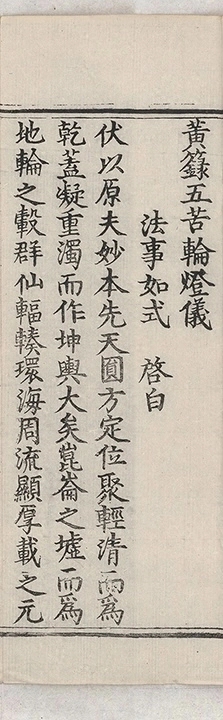 黃籙五苦輪燈儀
法事如式　啓白
伏以原夫妙本先天圓方定位聚輕清而為
乾蓋凝重濁而作坤輿大矣崑崙之墟而為
地輪之轂群仙輻輳環海周流顯厚載之元